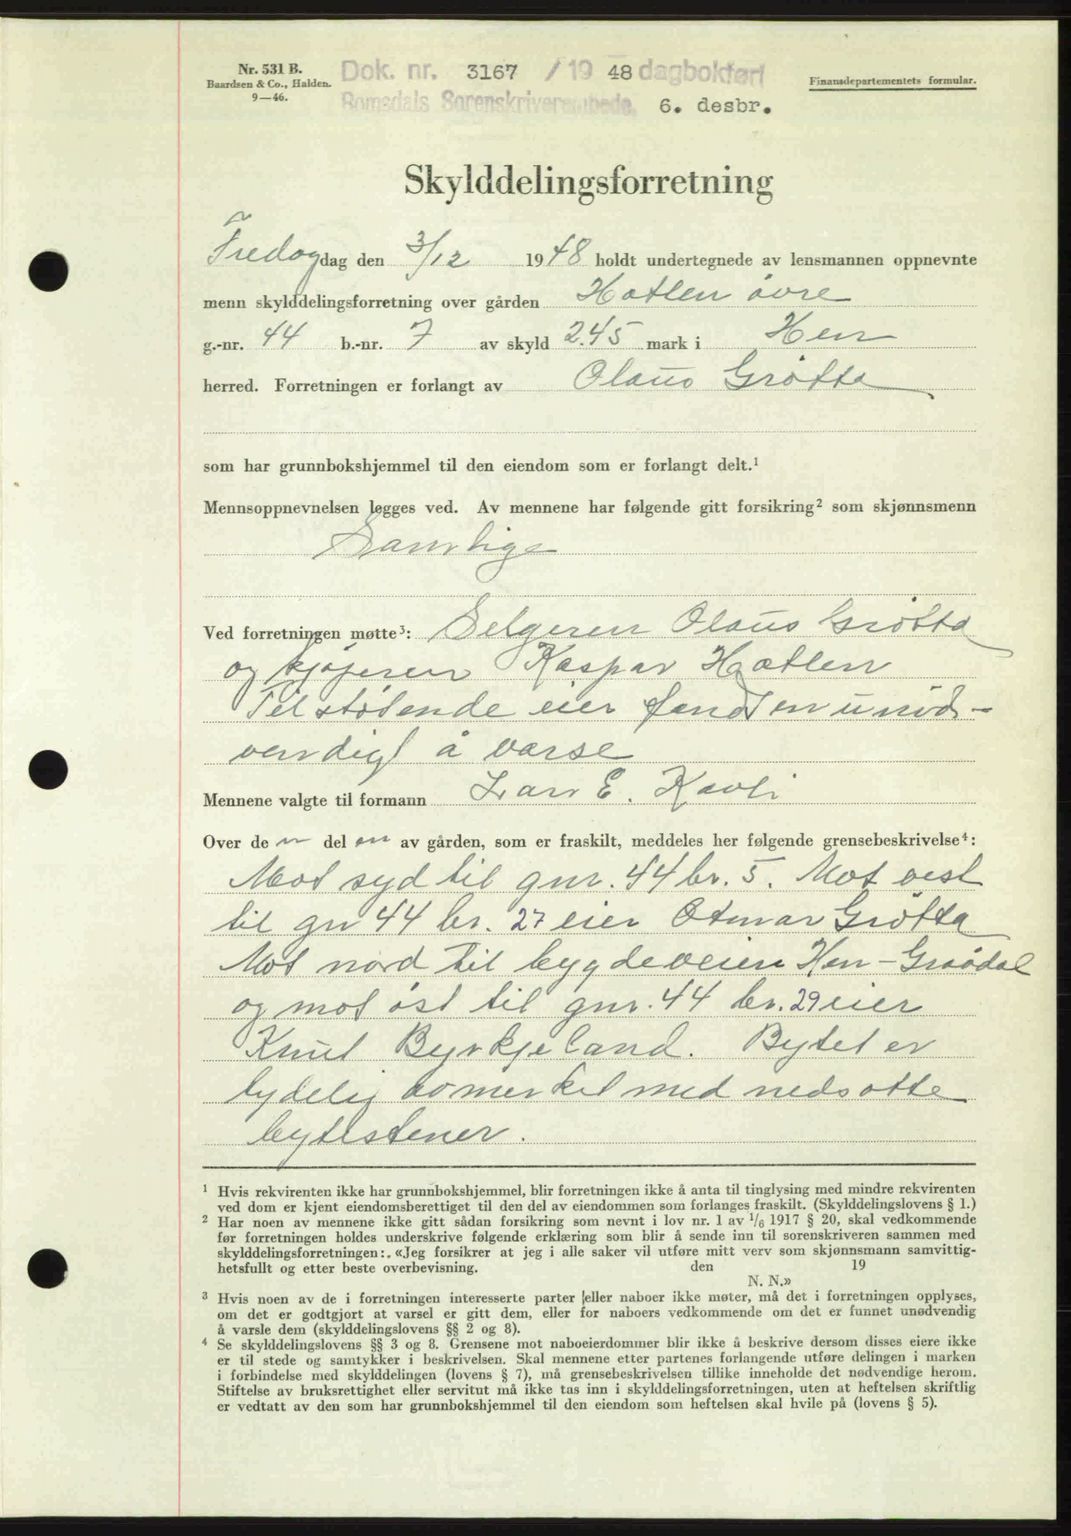 Nr. 531 B.
Baardsen & Co., Halden.
9—46.
Dok. nr. 3167 / 19 48 dagbokført
Romsdals Sorenskriverembede. 6. desbr.
Finansdepartementets formular.
Skylddelingsforretning
Fredag dag den 3/12 1948 holdt undertegnede av lensmannen oppnevnte
menn skylddelingsforretning over gården Hatlen øvre
g.-nr. 44 b.-nr. 7 av skyld 2.45 mark i Hen
herred. Forretningen er forlangt av Olaus Grötta
som har grunnbokshjemmel til den eiendom som er forlangt delt.¹
Mennsoppnevnelsen legges ved. Av mennene har følgende gitt forsikring² som skjønnsmenn
Samtlige
Ved forretningen møtte³: Selgeren Olaus Grötta
og kjøperen Kaspar Hatlen
Tilstötende eier fandt en unöd-
vendigt å varse
Mennene valgte til formann Lars E. Kavli
Over de n del en av gården, som er fraskilt, meddeles her følgende grensebeskrivelse⁴:
Mot syd til gnr. 44 br. 5. Mot vest
til gn 44 br. 27 eier Otmar Grötta
Mot nord til bygdeveien Hen - Grödal
og mot öst til gnr. 44 br. 29 eier
Knut Byrkjeland. Bytet er
tydelig avmerket med nedsatte
bytestener.
¹ Hvis rekvirenten ikke har grunnbokshjemmel, blir forretningen ikke å anta til tinglysing med mindre rekvirenten
ved dom er kjent eiendomsberettiget til den del av eiendommen som forlanges fraskilt. (Skylddelingslovens § 1.)
² Har noen av mennene ikke gitt sådan forsikring som nevnt i lov nr. 1 av 1/6 1917 § 20, skal vedkommende
før forretningen holdes underskrive følgende erklæring som blir å sende inn til sorenskriveren sammen med
skylddelingsforretningen:. «Jeg forsikrer at jeg i alle saker vil utføre mitt verv som skjønnsmann samvittig-
hetsfullt og etter beste overbevisning. den 19
N. N.»
³ Hvis noen av de i forretningen interesserte parter eller naboer ikke møter, må det i forretningen opplyses,
om det er godtgjort at varsel er gitt dem, eller for naboers vedkommende om det er funnet unødvendig
å varsle dem (skylddelingslovens §§ 2 og 8).
⁴ Se skylddelingslovens §§ 3 og 8. Grensene mot naboeierdommer blir ikke å beskrive dersom disses eiere ikke
er til stede og samtykker i beskrivelsen. Skal mennene etter partenes forlangende utføre delingen i marken
i forbindelse med skylddelingen (lovens § 7), må grensebeskrivelsen tillike inneholde det nødvendige herom.
Stiftelse av bruksrettighet eller servitut må ikke tas inn i skylddelingsforretningen, uten at heftelsen skriftlig
er vedtatt av den som har grunnbokshjemmel til den eiendom som heftelsen skal hvile på (lovens § 5).